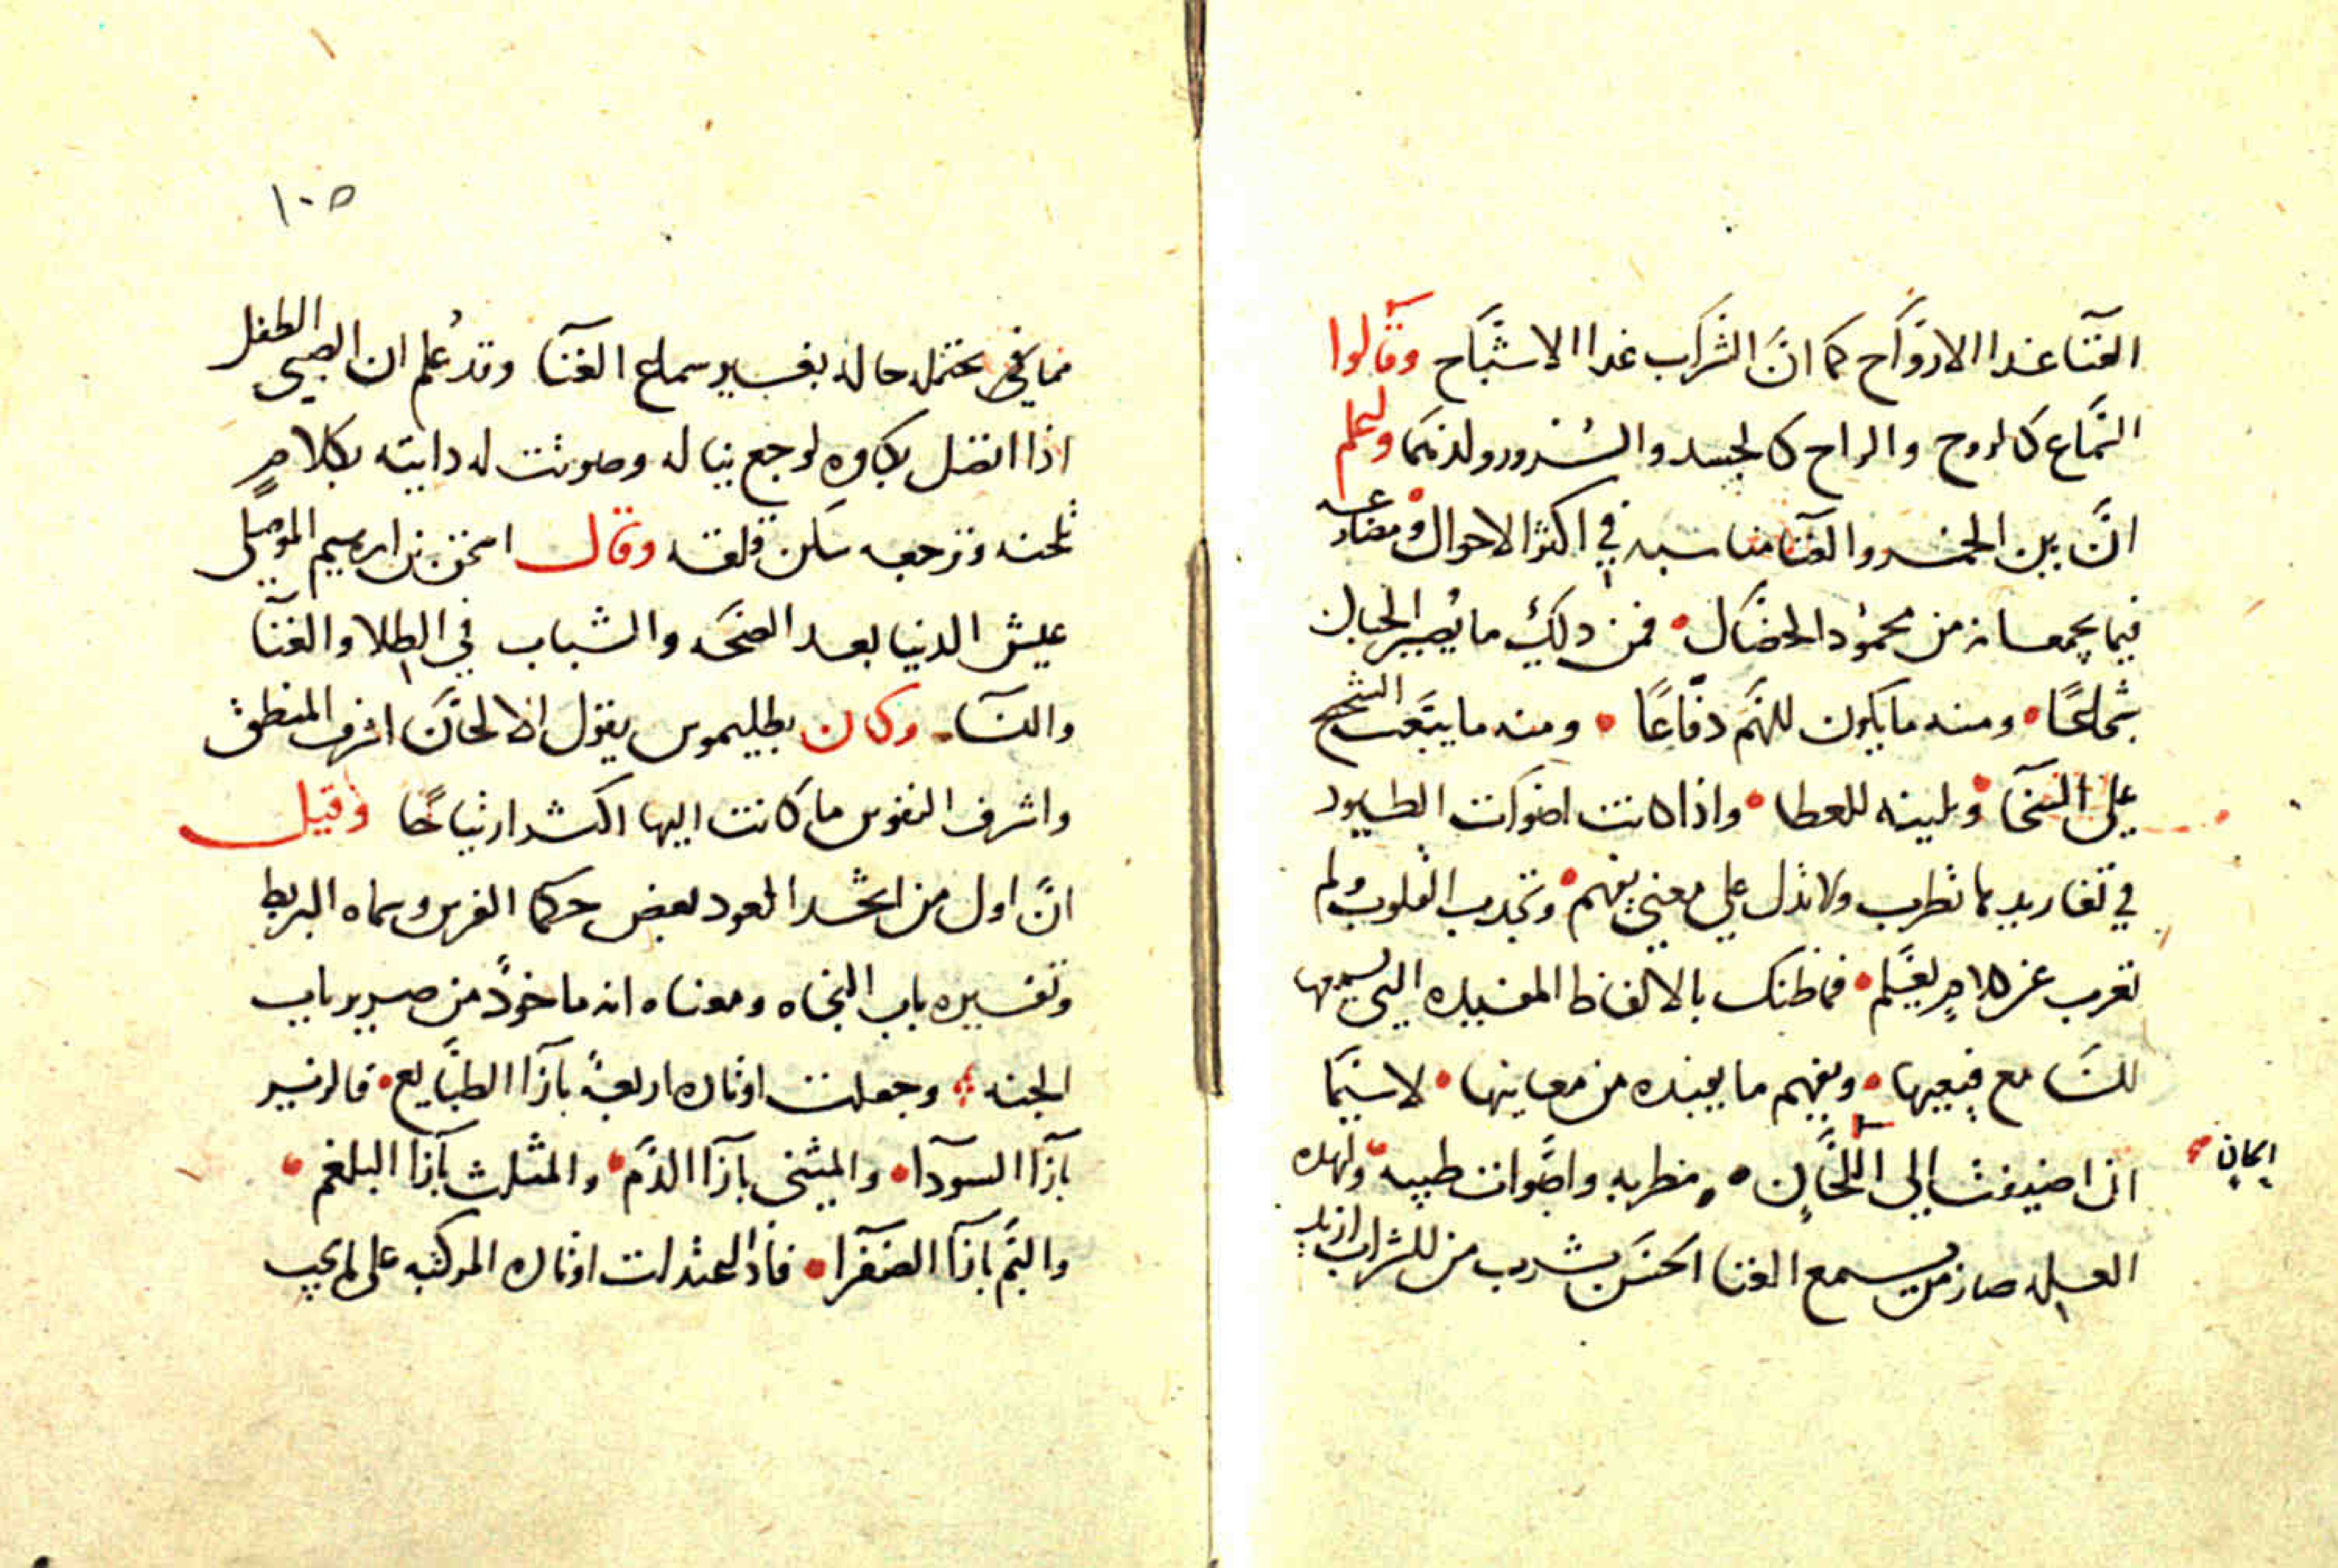 الغنا غذا الارواح كما ان الشراب غذا الاشباح وقالوا
السماع كالروح والراح كالجسد والسرور ولدهما وليعلم
ان بين الخمر والغنا مناسبه في اكثر الاحوال ومضارعه
فيما يجمعانه من محمود الخصال فمن ذلك ما يصير الجبان
شجاعًا ومنه ما يكون للهم دفّاعًا ومنه ما يبعث الشحيح
على السخا ويلينه للعطا واذا كانت اصوات الطيور
في تغاريدها تطرب ولا تدل على معنى يفهم وتجذب القلوب ولم
تعرب عن كلام يعلم فما ظنك بالالفاظ المفيده التي يسمعها
السامع فيعيها ويفهم ما يفيده من معانيها لا سيما
اذا اضيفت الى الحان مطربه واصوات طيبه ولهذه
الحان
العله صار من يسمع الغنا الحسن يشرب من الشراب ازيد
مما يحتمل حاله بغير سماع الغنا وقد عُلم ان الصبى الطفل
اذا اتصل بكاوه لوجع يناله وصوتت له دايته بكلام
تلحنه وترجعه سكن قلقه وقال اسحق بن ابرهيم الموصلى
عيش الدنيا بعد الصحه والشباب في الطلا والغنا
والنسا وكان بطليموس يقول الالحان اشرف المنطق
واشرف النفوس ما كانت اليها اكثر ارتياحًا وقيل
انّ اول من اتخذ العود بعض حكما الفرس وسماه البربط
وتفسيره باب النجاه ومعناه انه ماخوذ من صرير باب
الجنه وجعلت اوتاره اربعة بازا الطبايع فالزير
بازا السودا والمثنى بازا الدم والمثلث بازا البلغم
والبم بازا الصفرا فاذا اعتدلت اوتاره المركبه على ما يجب
١٠٥